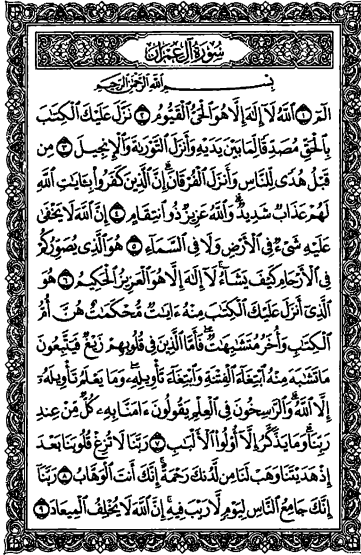 سُورَةُ آلِ عِمْرَانَ
بِسْمِ اللَّهِ الرَّحْمَٰنِ الرَّحِيمِ
الٓمٓ ١ اللَّهُ لَا إِلَٰهَ إِلَّا هُوَ الْحَيُّ الْقَيُّومُ ٢ نَزَّلَ عَلَيْكَ الْكِتَٰبَ
بِالْحَقِّ مُصَدِّقًا لِّمَا بَيْنَ يَدَيْهِ وَأَنزَلَ التَّوْرَىٰةَ وَالْإِنجِيلَ ٣ مِن
قَبْلُ هُدًى لِّلنَّاسِ وَأَنزَلَ الْفُرْقَانَ ۗ إِنَّ الَّذِينَ كَفَرُوا۟ بِـَٔايَٰتِ اللَّهِ
لَهُمْ عَذَابٌ شَدِيدٌ ۗ وَاللَّهُ عَزِيزٌ ذُو انتِقَامٍ ٤ إِنَّ اللَّهَ لَا يَخْفَىٰ
عَلَيْهِ شَىْءٌ فِى الْأَرْضِ وَلَا فِى السَّمَآءِ ٥ هُوَ الَّذِى يُصَوِّرُكُمْ
فِى الْأَرْحَامِ كَيْفَ يَشَآءُ ۚ لَا إِلَٰهَ إِلَّا هُوَ الْعَزِيزُ الْحَكِيمُ ٦ هُوَ
الَّذِىٓ أَنزَلَ عَلَيْكَ الْكِتَٰبَ مِنْهُ ءَايَٰتٌ مُّحْكَمَٰتٌ هُنَّ أُمُّ
الْكِتَٰبِ وَأُخَرُ مُتَشَٰبِهَٰتٌ ۖ فَأَمَّا الَّذِينَ فِى قُلُوبِهِمْ زَيْغٌ فَيَتَّبِعُونَ
مَا تَشَٰبَهَ مِنْهُ ابْتِغَآءَ الْفِتْنَةِ وَابْتِغَآءَ تَأْوِيلِهِۦ ۗ وَمَا يَعْلَمُ تَأْوِيلَهُۥٓ
إِلَّا اللَّهُ ۗ وَالرَّٰسِخُونَ فِى الْعِلْمِ يَقُولُونَ ءَامَنَّا بِهِۦ كُلٌّ مِّنْ عِندِ
رَبِّنَا ۗ وَمَا يَذَّكَّرُ إِلَّآ أُو۟لُوا۟ الْأَلْبَٰبِ ٧ رَبَّنَا لَا تُزِغْ قُلُوبَنَا بَعْدَ
إِذْ هَدَيْتَنَا وَهَبْ لَنَا مِن لَّدُنكَ رَحْمَةً ۚ إِنَّكَ أَنتَ الْوَهَّابُ ٨ رَبَّنَآ
إِنَّكَ جَامِعُ النَّاسِ لِيَوْمٍ لَّا رَيْبَ فِيهِ ۚ إِنَّ اللَّهَ لَا يُخْلِفُ الْمِيعَادَ ٩